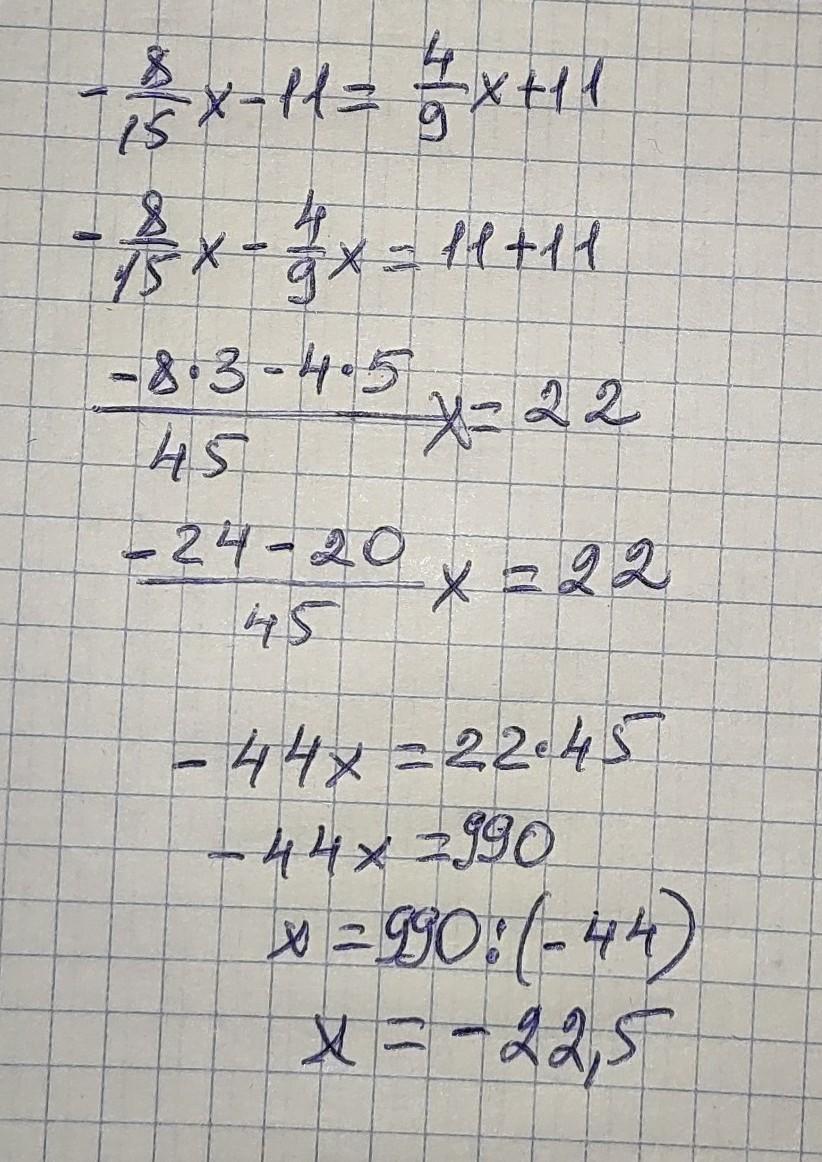 -8/15 x - 11 = 4/9 x + 11
-8/15 x - 4/9 x = 11 + 11
(-8·3 - 4·5)/45 x = 22
(-24 - 20)/45 x = 22
-44x = 22·45
-44x = 990
x = 990 : (-44)
x = -22,5